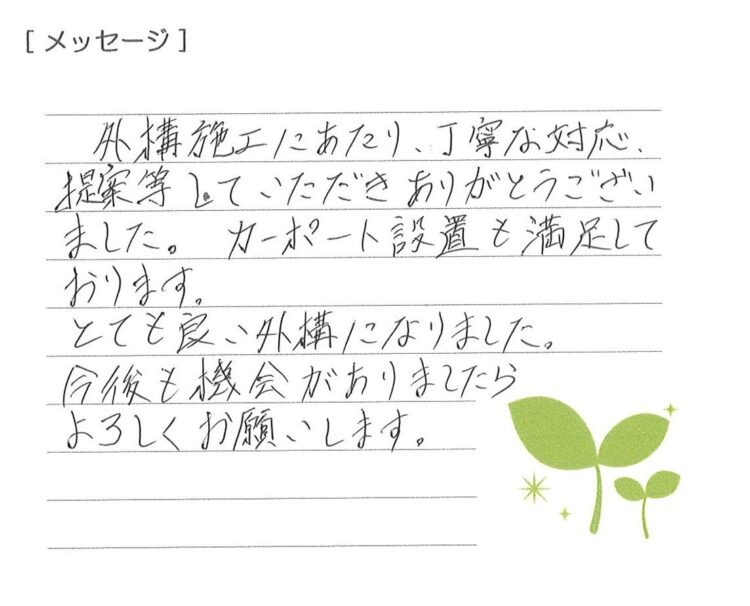 [ メッセージ ]
外構施工にあたり、丁寧な対応、
提案等していただきありがとうござい
ました。 カーポート設置も満足して
おります。
とても良い外構になりました。
今後も機会がありましたら
よろしくお願いします。